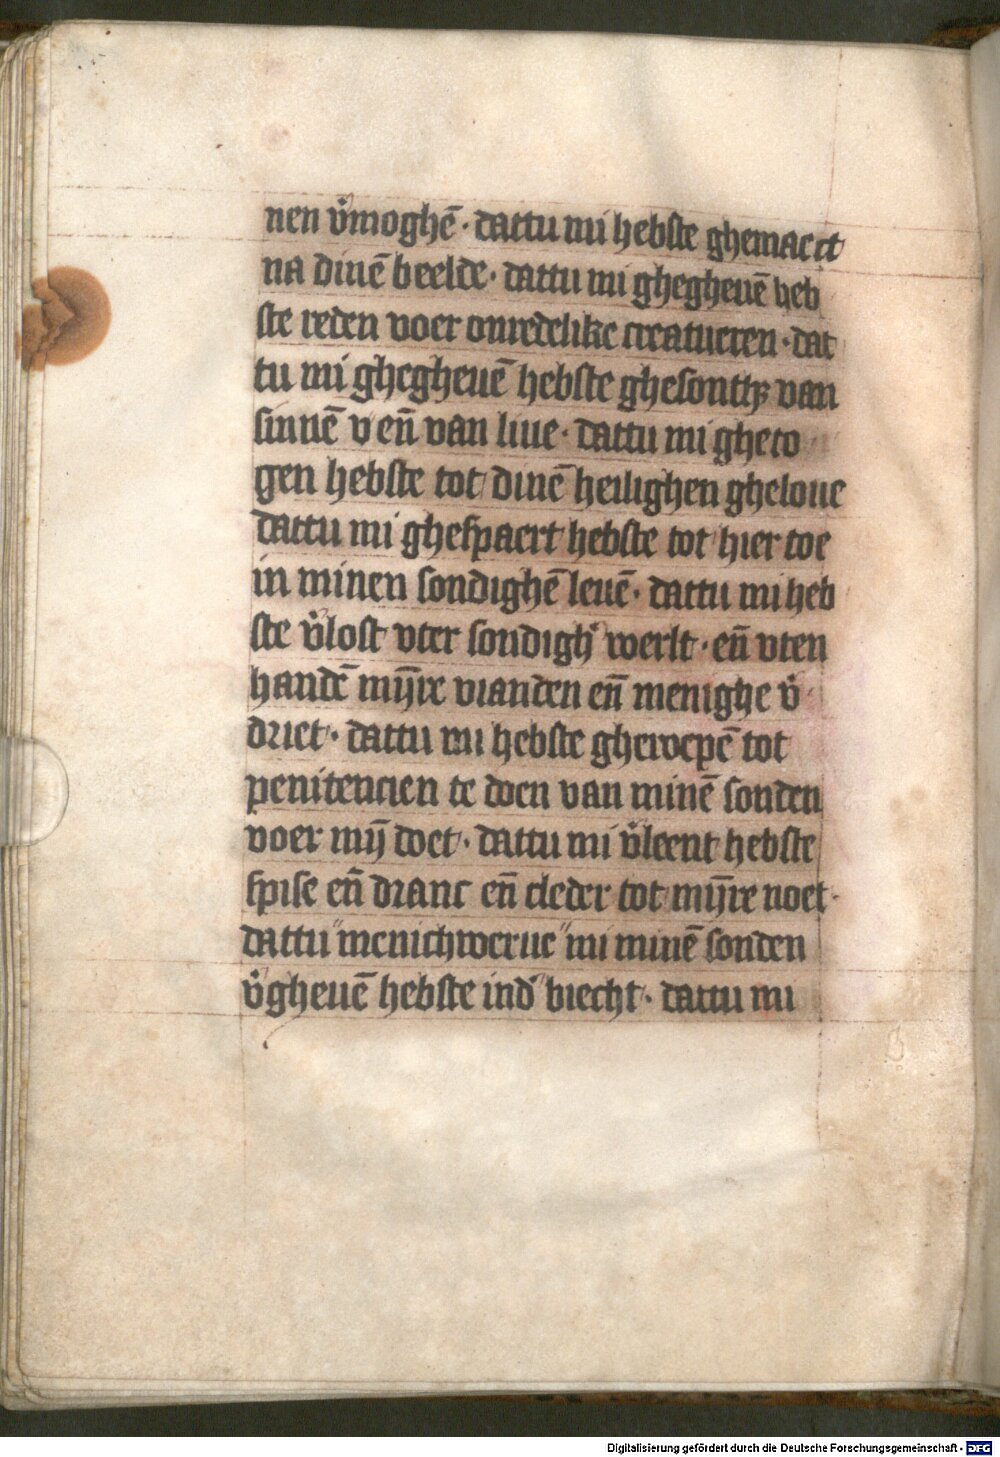 nen v̉moghē · dattu mi hebste ghemaect
na dinē beelde · dattu mi ghegheuē heb
ste reden voer onredelike creatueren · dat
tu mi ghegheuē hebste ghesonthꝫ van
sinnē v en̄ van liue · dattu mi gheto
gen hebste tot dinē heilighen gheloue
dattu mi ghespaert hebste tot hier toe
in minen sondighē leuē · dattu mi heb
ste v̉lost vter sondigh̉ werlt · en̄ vten
handē mȳre vianden en̄ menighe v̉
driet · dattu mi hebste gheroepē tot
penitencien te doen van minē sonden
voer mȳ doet · dattu mi v̉leent hebste
spise en̄ dranc en̄ cleder tot mȳre noet ·
dattu "menichwerue" mi minē sonden
v̉gheuē hebste ind̉ biecht · dattu mi
Digitalisierung gefördert durch die Deutsche Forschungsgemeinschaft - DFG